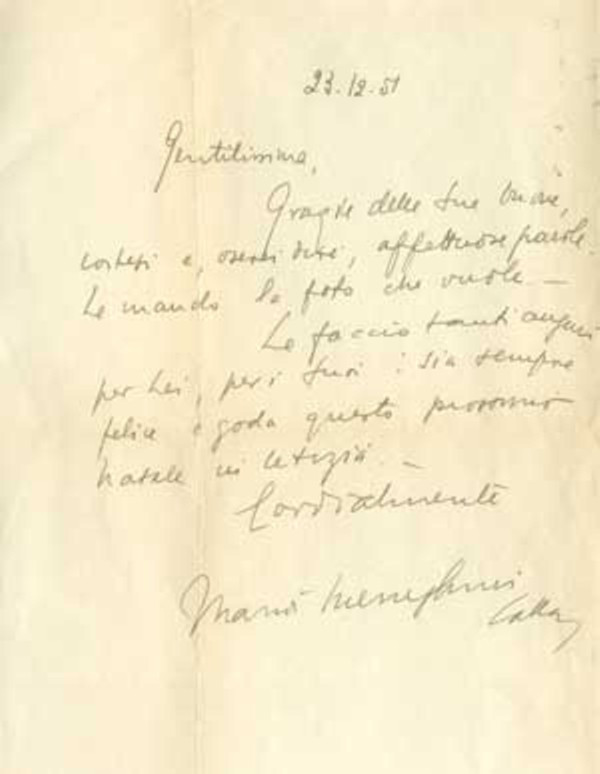 23.12.51
Gentilissima,
Grazie delle Sue buone,
cortesi e, oserei dire, affettuose parole.
Le mando la foto che vuole. —
Le faccio tanti auguri
per Lei, per i Suoi: sia sempre
felice e goda questo prossimo
Natale in letizia. —
Cordialmente
Maria Meneghini
Callas